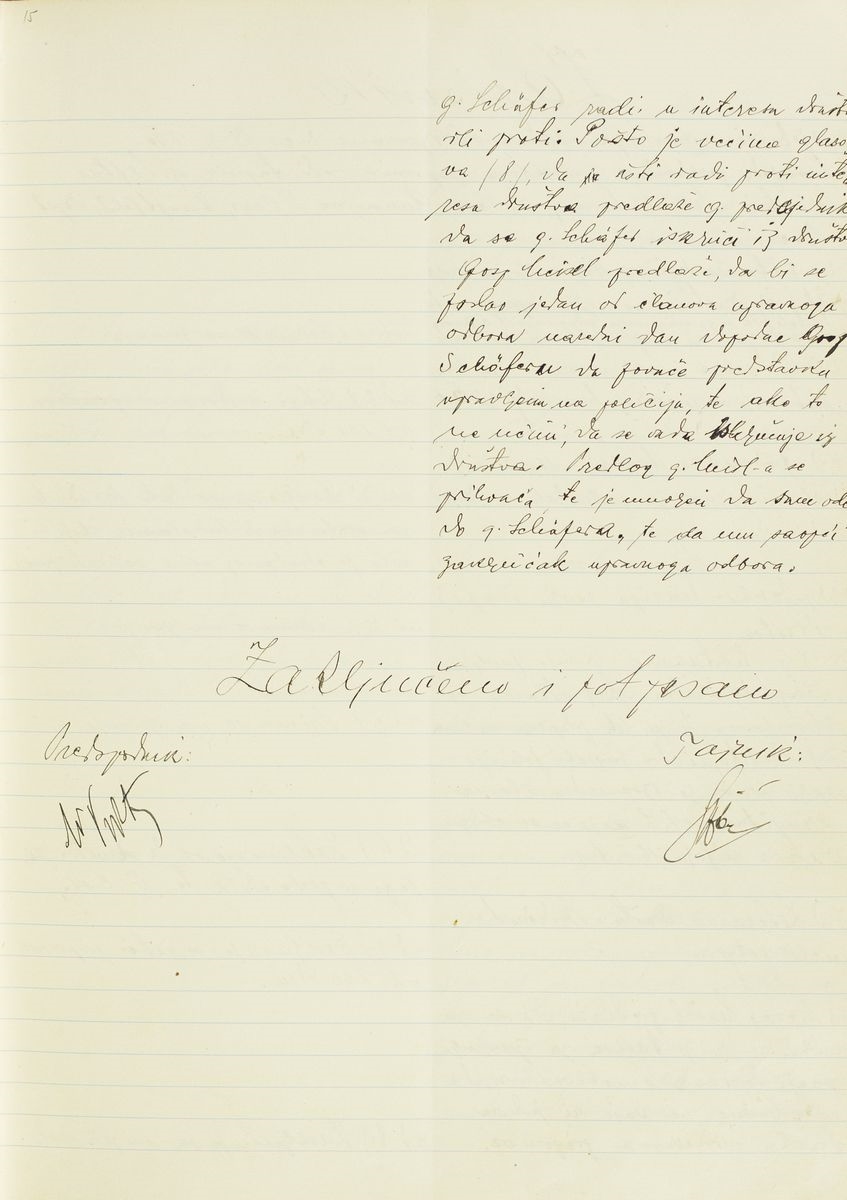 15
g. Schäfer radi u interesu društ
ili proti. Pošto je većina glaso
va /8/, da je isti radi proti inte
resa društva predlaže g. predsjednik
da se g. Schäfer isključi iz društv
Gosp Meisl predlaže, da bi se
poslao jedan od članova upravnoga
odbora naredni dan dopodne Gosp
Schäferu da povuče predstavku
upravljenu na policiju, te ako to
ne učini, da se onda isključuje iz
društva. Predlog g. Meisl-a se
prihvaća, te je umoljen da sam ode
do g. Schäfera, te da mu saopći
zaključak upravnoga odbora.
Zaključeno i potpisano
Predsjednik:
Tajnik: